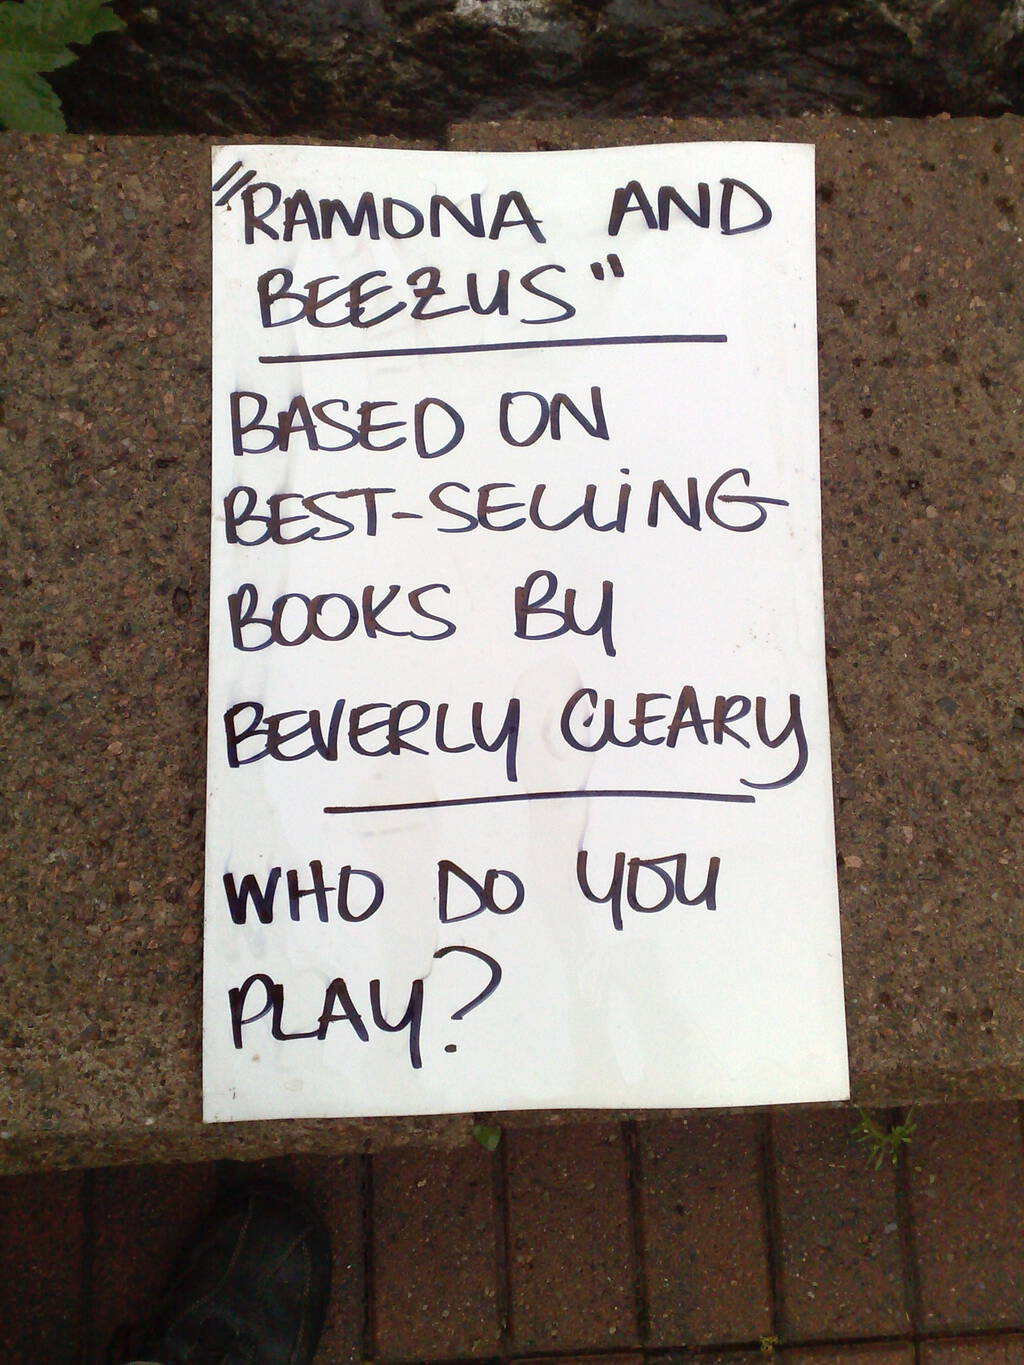 "RAMONA AND
BEEZUS"
BASED ON
BEST-SELLING
BOOKS BY
BEVERLY CLEARY
WHO DO YOU
PLAY?